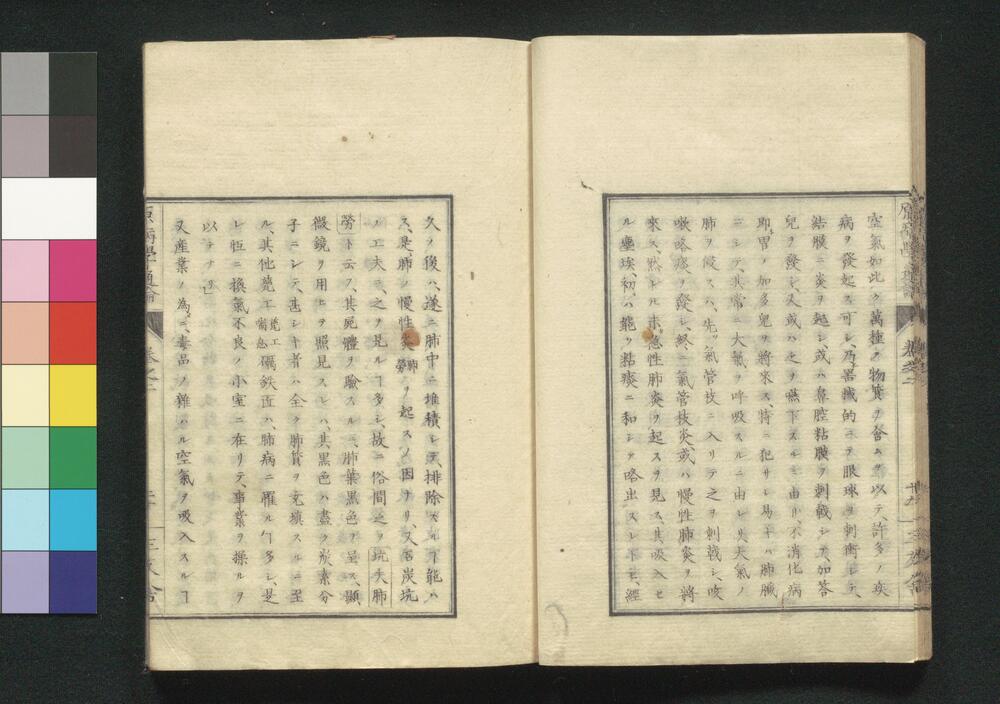 空氣如此ク萬種ノ物質ヲ含ムヲ以テ、許多ノ疾
病ヲ發起ス可シ、乃器械的ニテ眼球ヲ刺衝シテ、
結膜ニ炎ヲ起シ、或ハ鼻腔粘膜ヲ刺戟シテ、加答
兒ヲ發シ、又或ハ之ヲ嚥下スルニ由リ、不消化病
即胃ノ加多兒ヲ將來ス、特ニ犯サレ易キハ肺臟
ニシテ、其常ニ大氣ヲ呼吸スルニ由レリ、夫氣ノ
肺ヲ侵スハ、先ッ氣管枝ニ入リテ之ヲ刺戟シ、咳
嗽咯痰ヲ發シ、終ニ氣管枝炎、或ハ慢性肺炎ヲ將
來ス、然レ𪜈未急性肺炎ヲ起スヲ見ス、其吸入セ
ル塵埃、初ハ能ク粘痰ニ和シテ咯出スレ𪜈、經
久ノ後ハ、遂ニ肺中ニ堆積シテ、排除スルヿ能ハ
ス、是肺ノ慢性炎肺勞ヲ起スノ因ナリ、又石炭坑
ノ工夫ニ之ヲ見ルヿ多シ、故ニ俗間之ヲ坑夫肺
勞ト云フ、其屍體ヲ驗スルニ、肺葉黑色ヲ呈ス、顯
微鏡ヲ用ヒテ照見スレハ、其黑色ハ盡ク炭素分
子ニシテ、甚シキ者ハ全ク肺質ヲ充塡スルニ至
ル、其他
礪鉄匠ハ、肺病ニ罹ルヿ多ス、是
レ恒ニ換氣不良ノ小室ニ在リテ、事業ヲ操ルヲ
以テナリ」
又産業ノ為ニ、毒品ノ雜ハル空氣ヲ吸入スルヿ